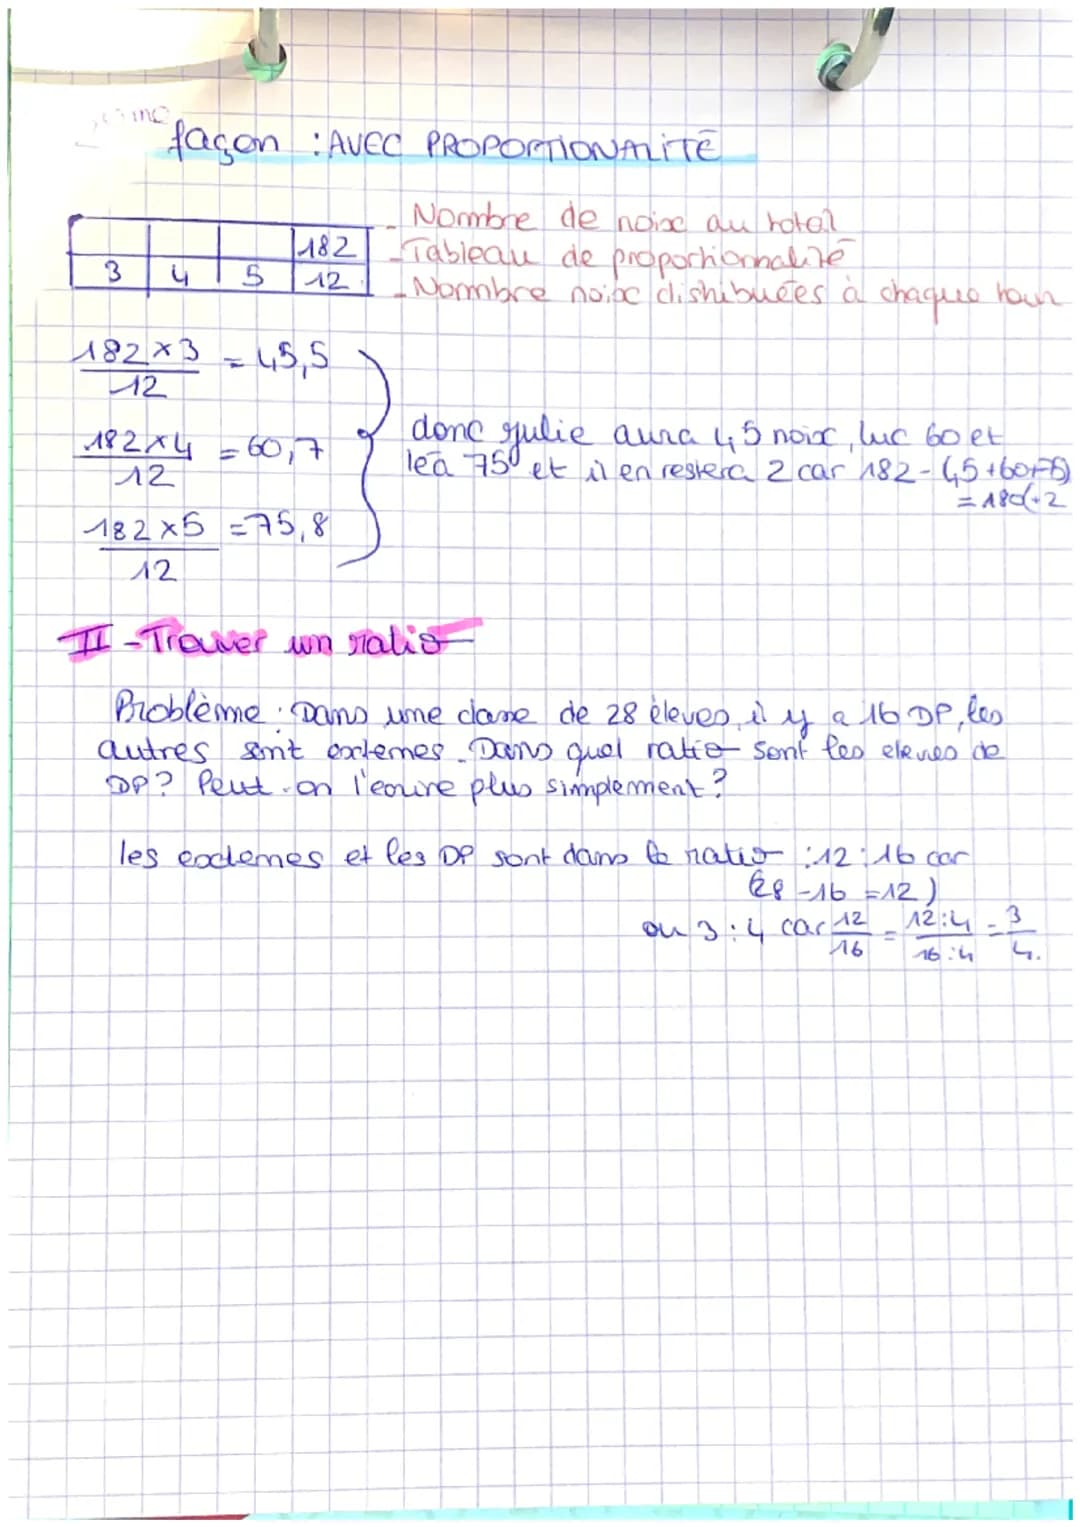 façon : AVEC PROPORTIONALITÉ
182
3 4 5 12
- Nombre de noix au total
- Tableau de proportionnalité
- Nombre noix distribuées à chaque tour
182 × 3 / 12 = 45,5
182 × 4 / 12 = 60,7
182 × 5 / 12 = 75,8
donc Julie aura 45 noix, luc 60 et
léa 75 et il en restera 2 car 182 - (45 + 60 + 75)
= 180 + 2
II - Trouver un ratio
Problème : Dans une classe de 28 élèves, il y a 16 DP, les
autres sont externes. Dans quel ratio sont les élèves de
DP ? Peut-on l'écrire plus simplement ?
les externes et les DP sont dans le ratio : 12 : 16 car
(28 - 16 = 12)
ou 3 : 4 car 12/16 = 12:4/16:4 = 3/4.